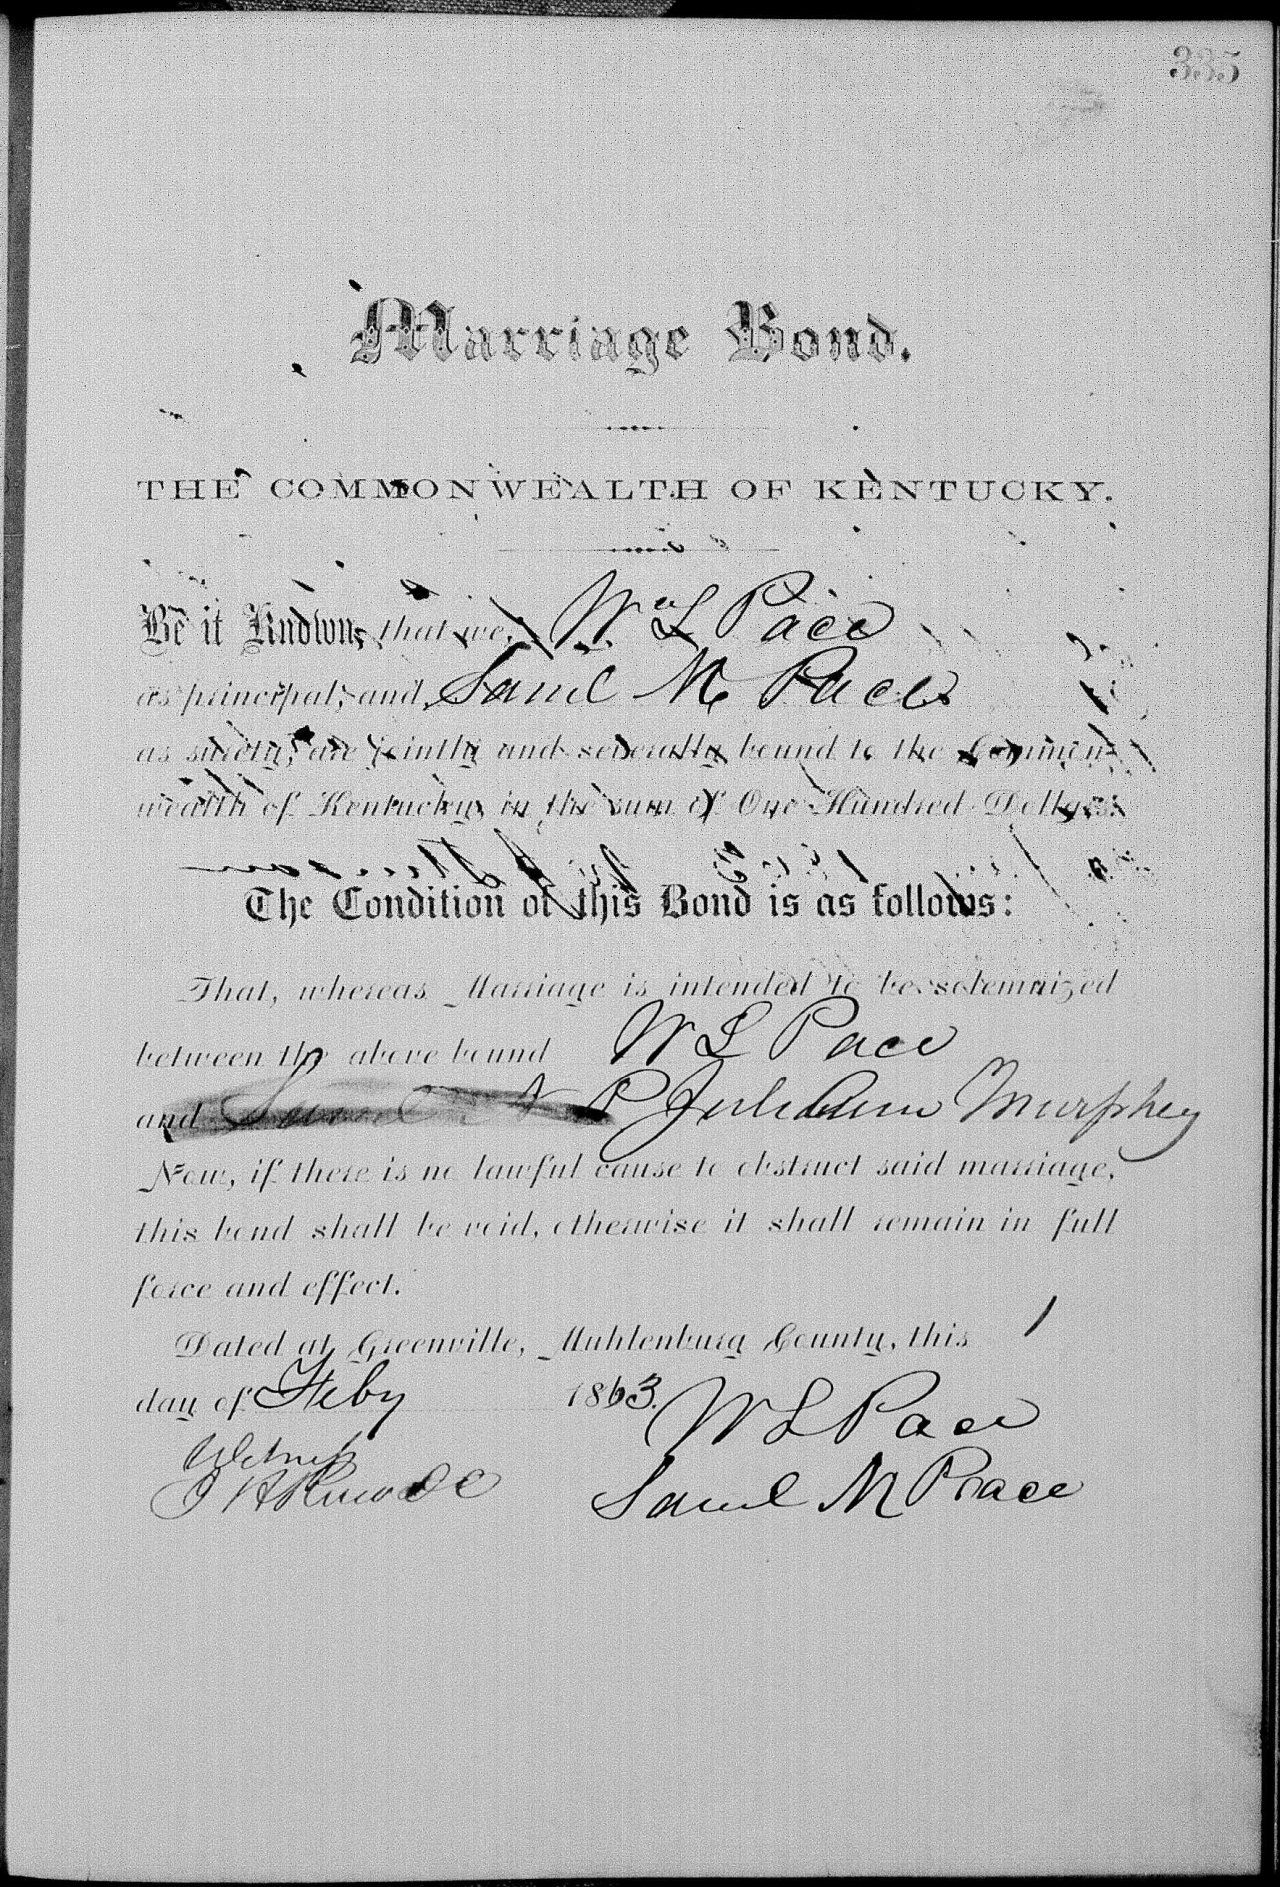 335
Marriage Bond.
THE COMMONWEALTH OF KENTUCKY.
Be it Known, that we, Wm L Pace
as principal, and Saml M Pace
as surety, are jointly and severally bound to the Common-
wealth of Kentucky, in the sum of One Hundred Dollars:
The Condition of this Bond is as follows:
That, whereas Marriage is intended to be solemnized
between the above bound W L Pace
and Juliann Murphey
Now, if there is no lawful cause to obstruct said marriage,
this bond shall be void, otherwise it shall remain in full
force and effect.
Dated at Greenville, Muhlenburg County, this 1
day of Feby 1863.
W L Pace
Witness
Saml M Pace